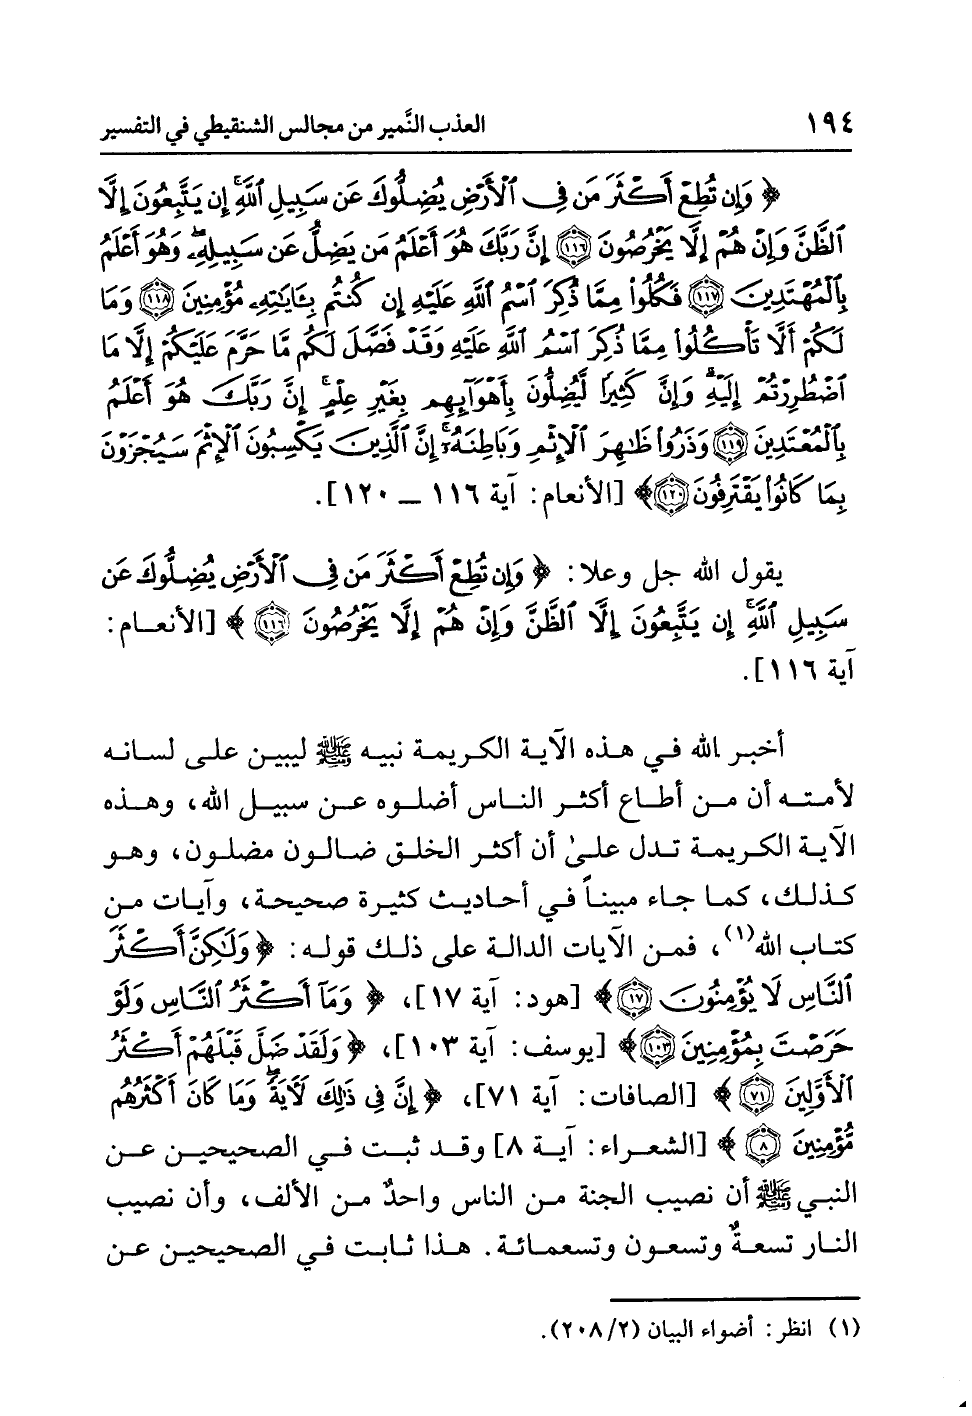 ١٩٤
العذب النَّمير من مجالس الشنقيطي في التفسير
﴿ وَإِن تُطِعْ أَكْثَرَ مَن فِي ٱلْأَرْضِ يُضِلُّوكَ عَن سَبِيلِ ٱللَّهِ ۚ إِن يَتَّبِعُونَ إِلَّا
ٱلظَّنَّ وَإِنْ هُمْ إِلَّا يَخْرُصُونَ ﴿١١٦﴾ إِنَّ رَبَّكَ هُوَ أَعْلَمُ مَن يَضِلُّ عَن سَبِيلِهِۦ ۖ وَهُوَ أَعْلَمُ
بِٱلْمُهْتَدِينَ ﴿١١٧﴾ فَكُلُوا۟ مِمَّا ذُكِرَ ٱسْمُ ٱللَّهِ عَلَيْهِ إِن كُنتُم بِـَٔايَـٰتِهِۦ مُؤْمِنِينَ ﴿١١٨﴾ وَمَا
لَكُمْ أَلَّا تَأْكُلُوا۟ مِمَّا ذُكِرَ ٱسْمُ ٱللَّهِ عَلَيْهِ وَقَدْ فَصَّلَ لَكُم مَّا حَرَّمَ عَلَيْكُمْ إِلَّا مَا
ٱضْطُرِرْتُمْ إِلَيْهِ ۗ وَإِنَّ كَثِيرًا لَّيُضِلُّونَ بِأَهْوَآئِهِم بِغَيْرِ عِلْمٍ ۗ إِنَّ رَبَّكَ هُوَ أَعْلَمُ
بِٱلْمُعْتَدِينَ ﴿١١٩﴾ وَذَرُوا۟ ظَـٰهِرَ ٱلْإِثْمِ وَبَاطِنَهُۥٓ ۚ إِنَّ ٱلَّذِينَ يَكْسِبُونَ ٱلْإِثْمَ سَيُجْزَوْنَ
بِمَا كَانُوا۟ يَقْتَرِفُونَ ﴿١٢٠﴾ ﴾ [الأنعام: آية ١١٦ ــ ١٢٠].
يقول الله جل وعلا: ﴿ وَإِن تُطِعْ أَكْثَرَ مَن فِي ٱلْأَرْضِ يُضِلُّوكَ عَن
سَبِيلِ ٱللَّهِ ۚ إِن يَتَّبِعُونَ إِلَّا ٱلظَّنَّ وَإِنْ هُمْ إِلَّا يَخْرُصُونَ ﴿١١٦﴾ ﴾ [الأنعام:
آية ١١٦].
أخبر الله في هذه الآية الكريمة نبيه ﷺ ليبين على لسانه
لأمته أن من أطاع أكثر الناس أضلوه عن سبيل الله، وهذه
الآية الكريمة تدل على أن أكثر الخلق ضالون مضلون، وهو
كذلك، كما جاء مبيناً في أحاديث كثيرة صحيحة، وآيات من
كتاب الله(١)، فمن الآيات الدالة على ذلك قوله: ﴿ وَلَـٰكِنَّ أَكْثَرَ
ٱلنَّاسِ لَا يُؤْمِنُونَ ﴿١٧﴾ ﴾ [هود: آية ١٧]، ﴿ وَمَآ أَكْثَرُ ٱلنَّاسِ وَلَوْ
حَرَصْتَ بِمُؤْمِنِينَ ﴿١٠٣﴾ ﴾ [يوسف: آية ١٠٣]، ﴿ وَلَقَدْ ضَلَّ قَبْلَهُمْ أَكْثَرُ
ٱلْأَوَّلِينَ ﴿٧١﴾ ﴾ [الصافات: آية ٧١]، ﴿ إِنَّ فِي ذَٰلِكَ لَآيَةً ۖ وَمَا كَانَ أَكْثَرُهُم
مُّؤْمِنِينَ ﴿٨﴾ ﴾ [الشعراء: آية ٨] وقد ثبت في الصحيحين عن
النبي ﷺ أن نصيب الجنة من الناس واحدٌ من الألف، وأن نصيب
النار تسعةٌ وتسعون وتسعمائة. هذا ثابت في الصحيحين عن
(١) انظر: أضواء البيان (٢٠٨/٢).